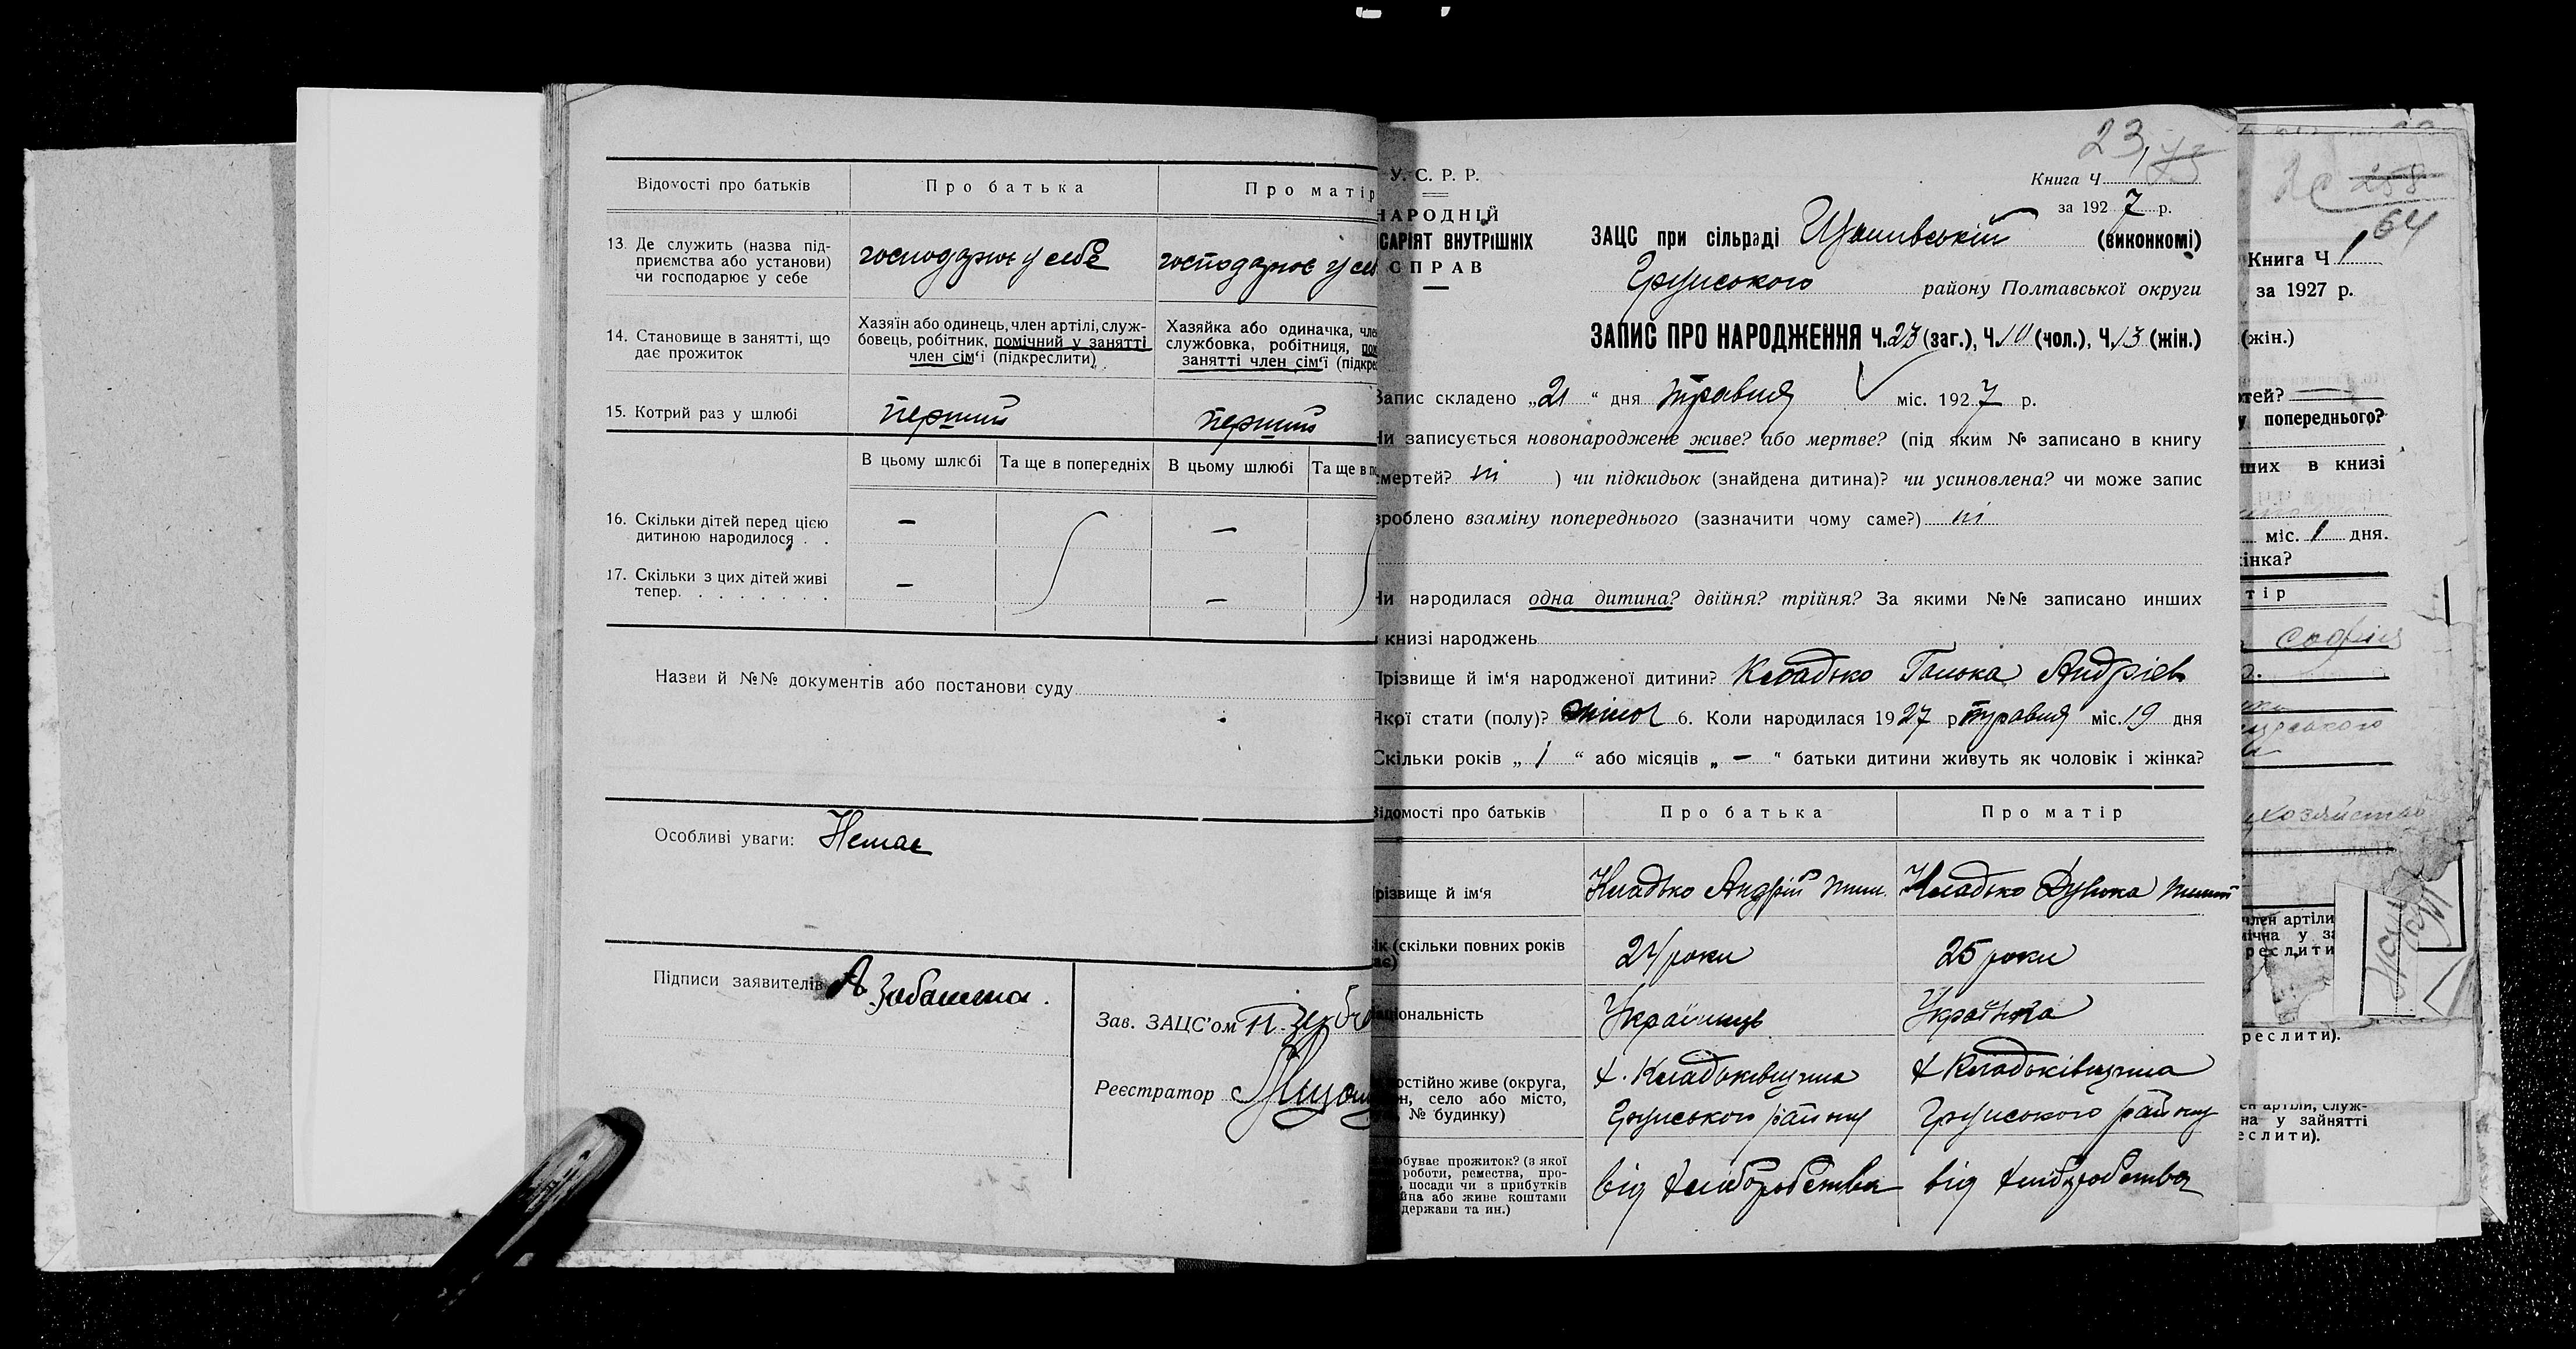 Відомості про батьків
Про батька
Про матір
13. Де служить (назва під-
приємства або установи)
чи господарює у себе
господарює у себе
господарює у
14. Становище в занятті, що
дає прожиток
Хазяїн або одинець, член артілі, служ-
бовець, робітник, помічний у занятті
член сім'ї (підкреслити)
Хазяйка або одиначка,
службовка, робітниця,
занятті член сім'ї
15. Котрий раз у шлюбі
перший
перший
В цьому шлюбі
Та ще в попередніх
В цьому шлюбі
Та ще в
16. Скільки дітей перед цією
дитиною народилося . .
—
—
17. Скільки з цих дітей живі
тепер. . . . . . . .
—
—
Назви й №№ документів або постанови суду
Особливі уваги: Немає
Підписи заявителів А Забашта.
Зав. ЗАЦС'ом
Реєстратор
23
73
У. С. Р. Р.
Книга Ч
НАРОДНІЙ
за 1927 р.
САРІЯТ ВНУТРІШНІХ
СПРАВ
ЗАЦС при сільраді (виконкомі)
Грунського району Полтавської округи
ЗАПИС ПРО НАРОДЖЕННЯ Ч. 23 (заг.), Ч. 10 (чол.), Ч. 13 (жін.)
Запис складено „21“ дня травня міс. 1927 р.
Чи записується новонароджене живе? або мертве? (під яким № записано в книгу
смертей? ні ) чи підкидьок (знайдена дитина)? чи усиновлена? чи може запис
зроблено взаміну попереднього (зазначити чому саме?) ні
Чи народилася одна дитина? двійня? трійня? За якими №№ записано инших
книзі народжень
Прізвище й ім'я народженої дитини? Кладько Ганка Андріев
Якої стати (полу)? жіноч 6. Коли народилася 1927 р травня міс. 19 дня
Скільки років „1“ або місяців „—“ батьки дитини живуть як чоловік і жінка?
Відомості про батьків
Про батька
Про матір
різвище й ім'я
Кладько Андрій
Кладько
ік (скільки повних років
24 роки
25 роки
Національність
Українець
Українка
остійно живе (округа,
н, село або місто,
№ будинку)
х. Кладьківщина
Грунського району
х Кладьківщина
Грунського району
обуває прожиток? (з якої
роботи, ремества, про-
посади чи з прибутків
йна або живе коштами
держави та ин.)
від хліборобства
від хліборобства
64
Книга Ч 1
за 1927 р.
(жін.)
тей?
попереднього?
ших в книзі
міс. 1 дня.
інка?
тір
Софія
член артіли
ічна у за
реслити
реслити).
ен артіли, служ-
на у зайнятті
еслити).